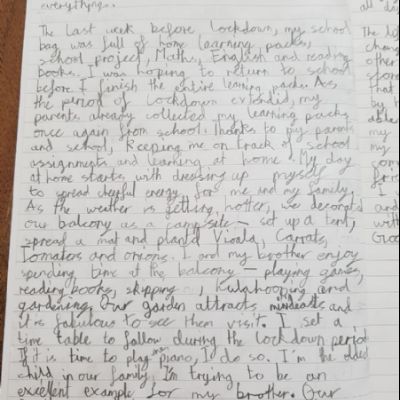 everything..
The last week before lockdown, my school
bag was full of home learning packs,
school project, Maths, English and reading
books. I was hoping to return to school
before I finish the entire learning packs. As
the period of Lockdown extended, my
parents already collected my learning packs
once again from school. Thanks to my parents
and school, keeping me on track of school
assignments and learning at home. My day
at home starts with dressing up myself
to spread cheyful energy for me and my family.
As the weather is getting hotter, we decorated
our balcony as a campsite - set up a tent,
spread a mat and planted Viola, Carrots,
Tomatos and onions. I and my brother enjoy
spending time at the balcony - playing games,
reading books, skipping, hulahooping and
gardening. Our garden attracts and
it is fabulous to see them visit. I set a
time table to follow during the lockdown period
If it is time to play piano, I do so. I'm the oldest
child in our family, I'm trying to be an
excellent example for my brother. Our
all
The
chang
other
that
by h
able
my
my
my
I
and
with